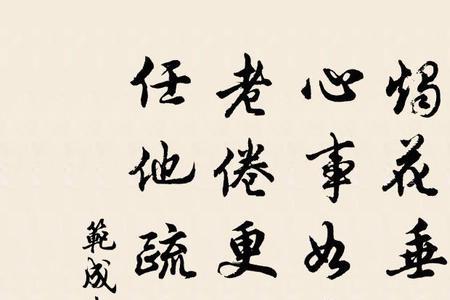 烛花垂
心事如
老倦更
任他疏
範成